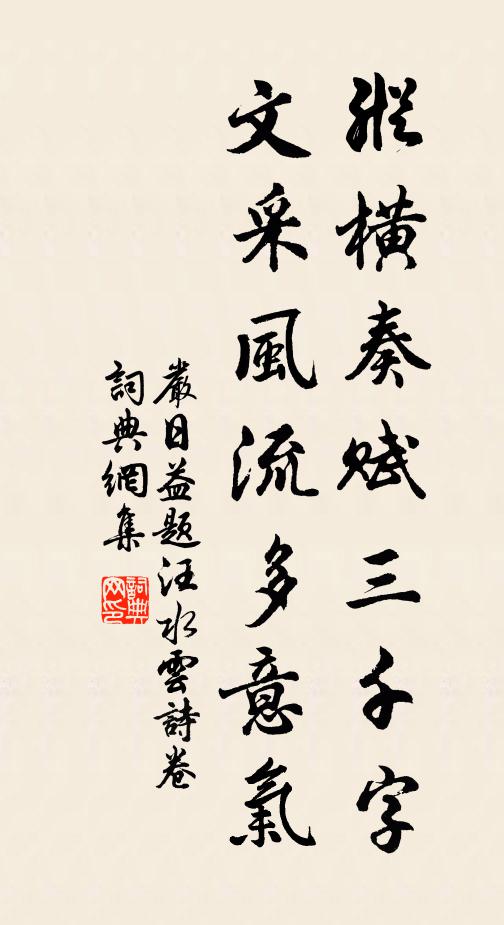 縱橫奏賦三千字
文采風流多意氣
嚴日益題汪水雲詩卷
詞典網集
詞典網印